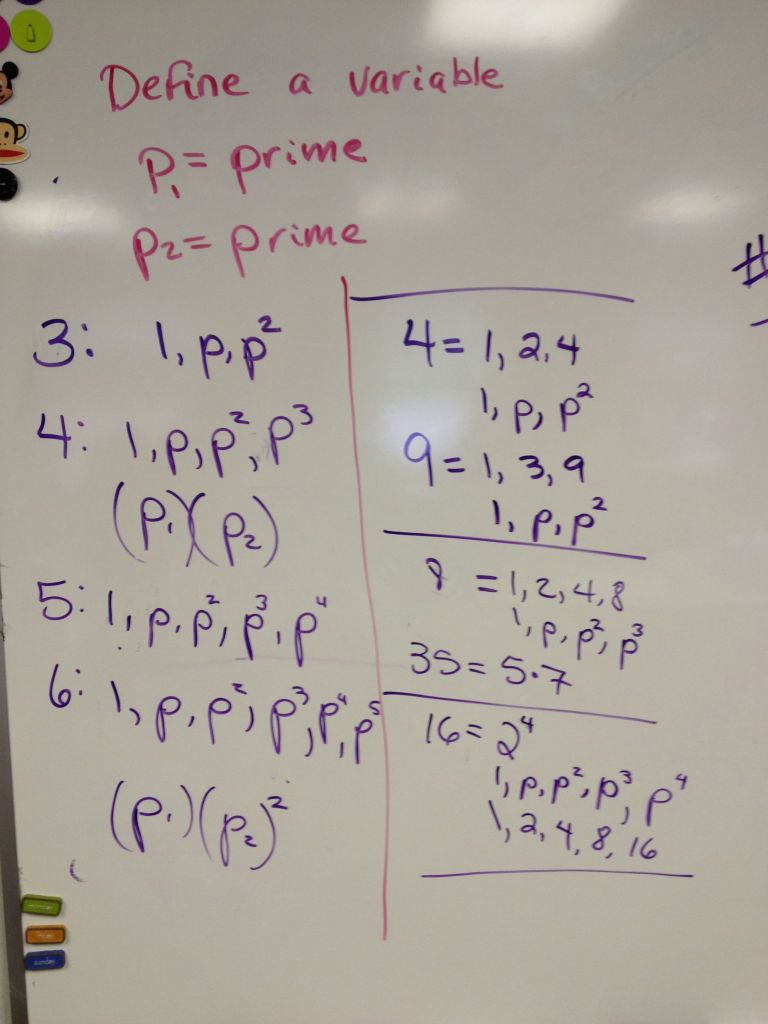 Define a variable
P₁ = prime
P₂ = prime
3: 1, p, p²
4: 1, p, p², p³
(p₁)(p₂)
5: 1, p, p², p³, p⁴
6: 1, p, p², p³, p⁴, p⁵
(p₁)(p₂)²
4 = 1, 2, 4
1, p, p²
9 = 1, 3, 9
1, p, p²
8 = 1, 2, 4, 8
1, p, p², p³
35 = 5·7
16 = 2⁴
1, p, p², p³, p⁴
1, 2, 4, 8, 16
#